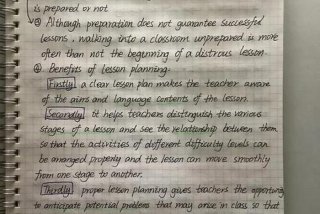 is prepared or not.
③ Although preparation does not guarantee successful
lessons, walking into a classroom unprepared is more
often than not the beginning of a distrous lesson
④ Benefits of lesson planning.
Firstly a clear lesson plan makes the teacher aware
of the aims and language contents of the lesson.
Secondly it helps teachers distinguish the various
stages of a lesson and see the relationship between them
so that the activities of different difficulty levels can
be arranged properly and the lesson can move smoothly
from one stage to another.
Thirdly proper lesson planning gives teachers the opportunity
to anticipate potential problems that may arise in class so that